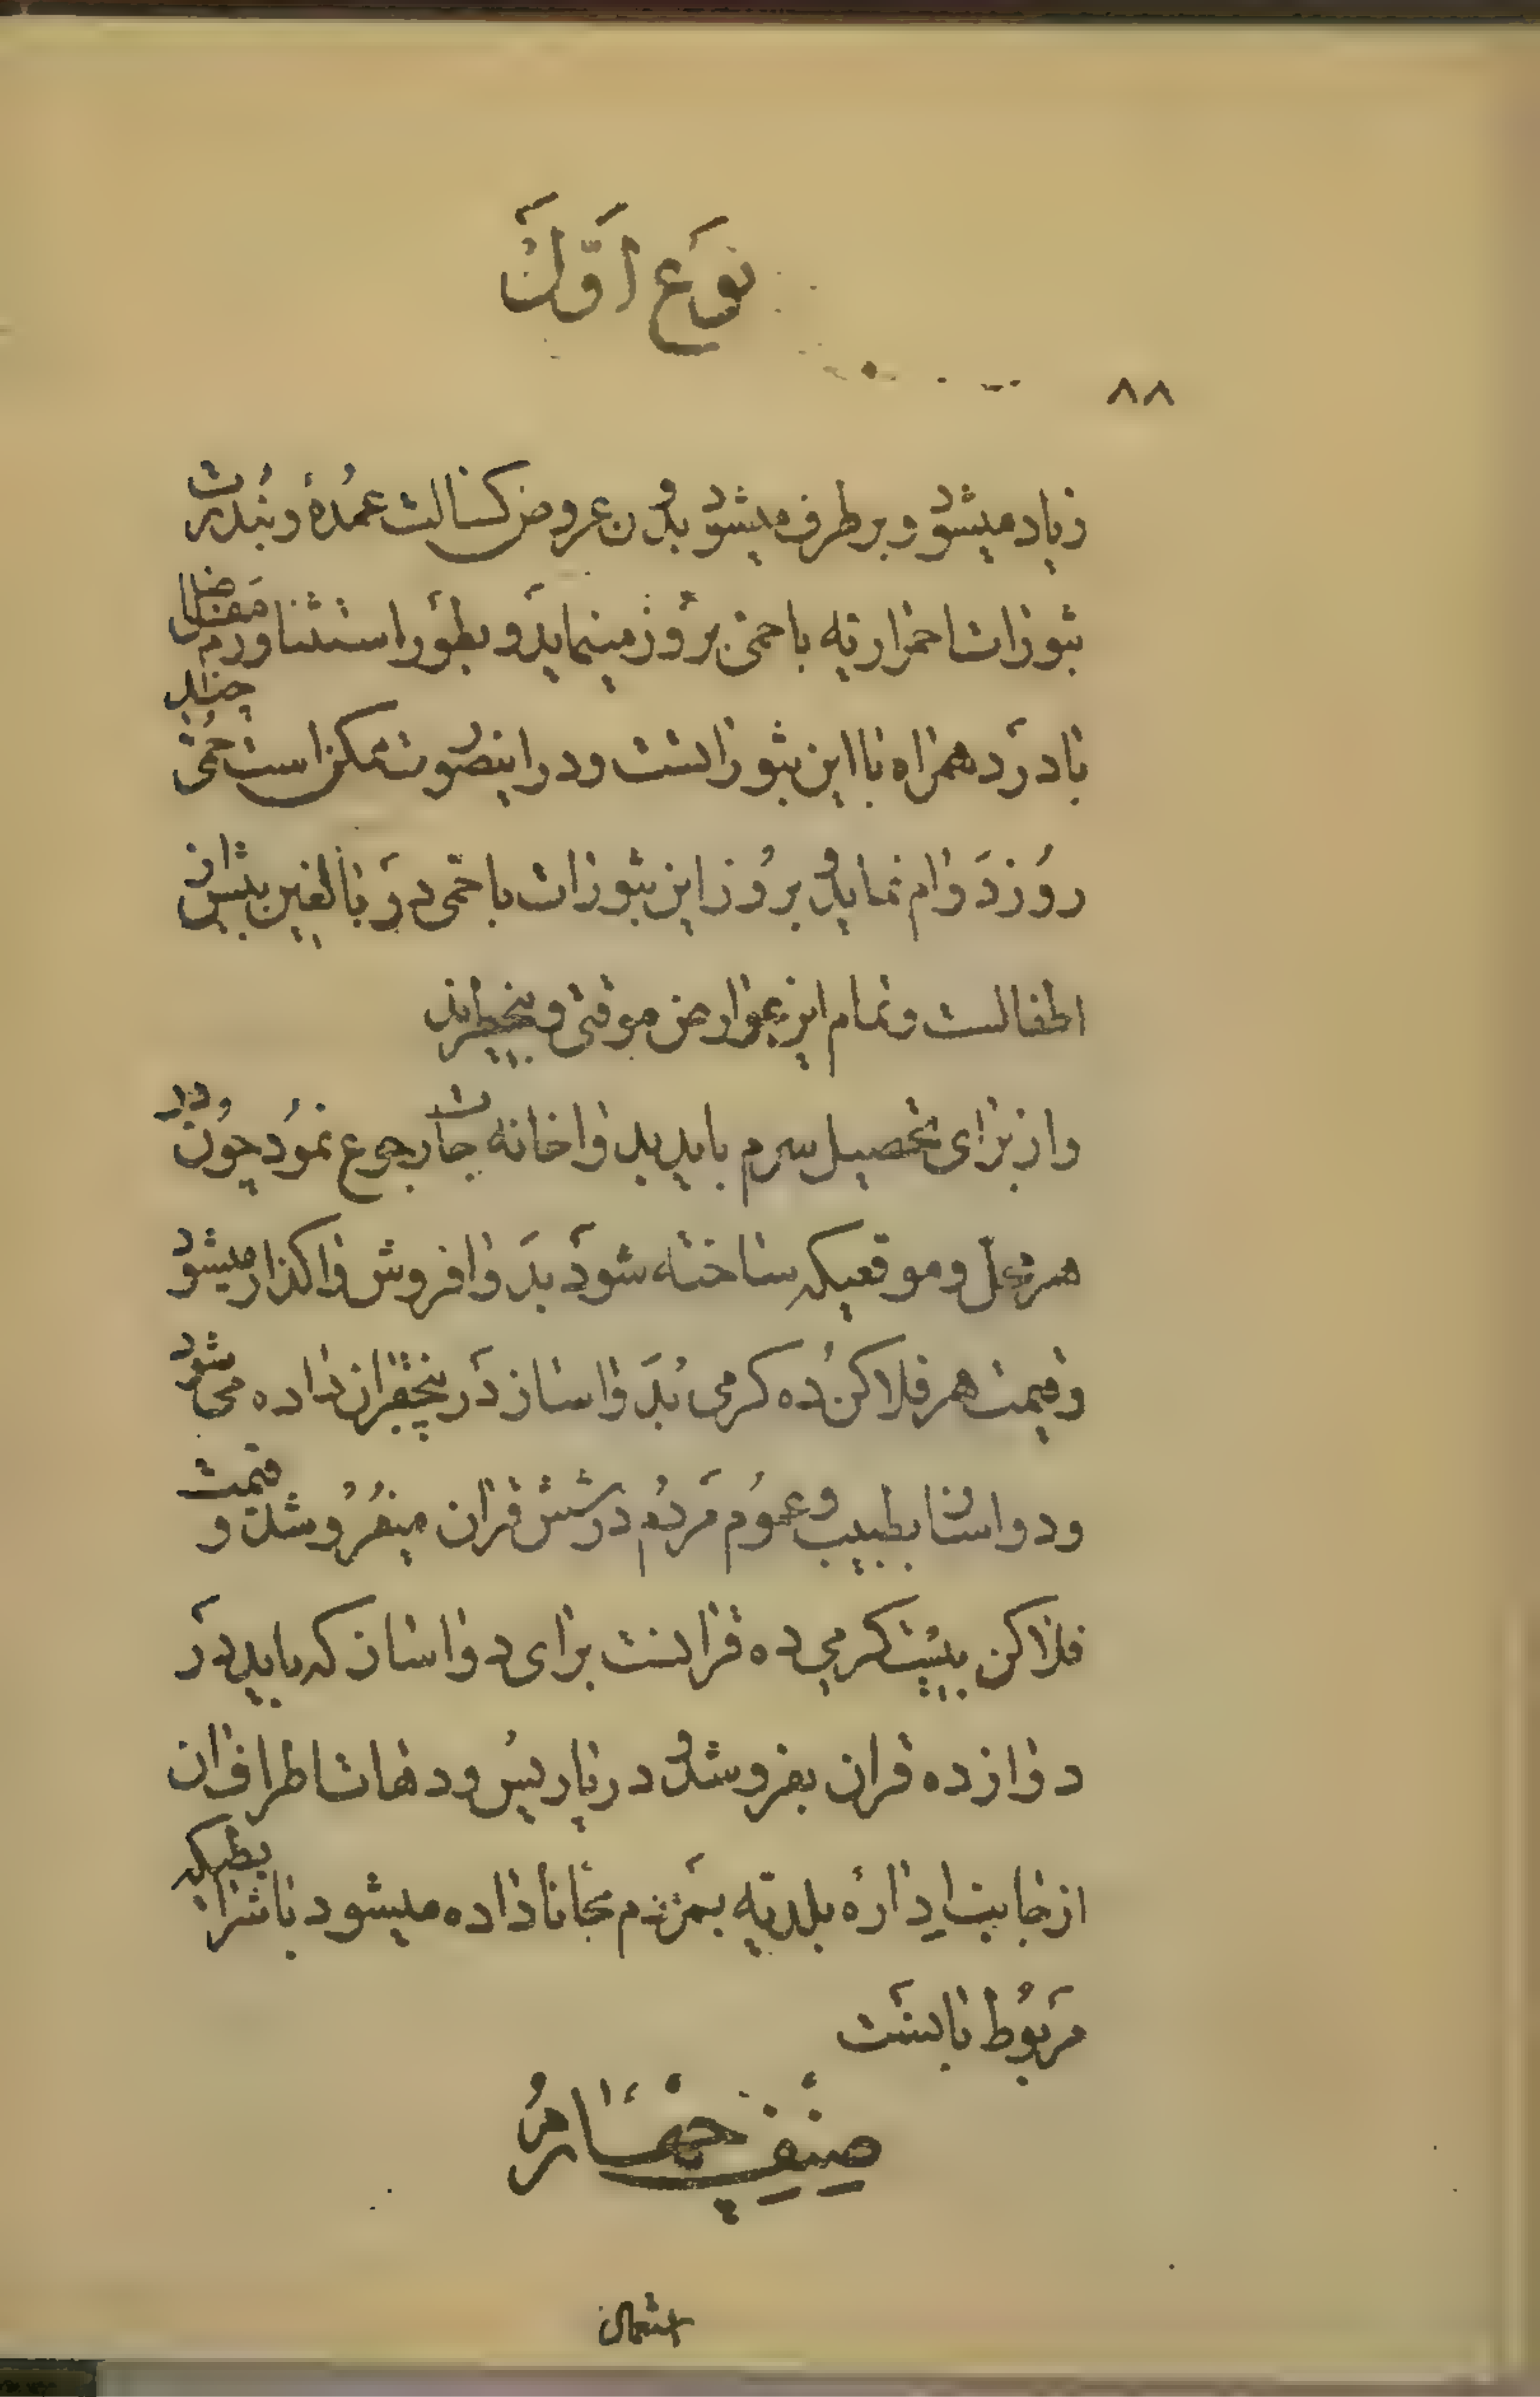 نوع اول
۸۸
زیاد میشود و برطرف میشود بدون عروض کسالت عمده و بندرت
بثورات احمراریه با حمی بروز مینماید و بطور استثنا ورم مفاصل
با درد همراه با این بثوراتست و در اینصورت ممکن است حمی چند
روز دوام نماید و بروز این بثورات با حمی در بالغین بیش از
اطفالست و تمام این عوارض موقتی و بیخطرند
و از برای تحصیل سرم باید بدواخانه جات رجوع نمود چون در
هر محل و موقعیکه ساخته شود بدوافروش واگذار میشود
و قیمت هر فلاکن ده کرمی بدواساز در پنجقران داده می شود
و دواساز بطبیب و عموم مردم در شش قران میفروشد و قیمت
فلاکن بیست کرمی ده قرانست برای دواساز که باید در
دوازده قران بفروشد و در پاریس و دهات اطراف ان
از جانب اداره بلدیه بمردم مجانا داده میشود با شرایطیکه
مربوط بانست
صنف چهارم
استعمال